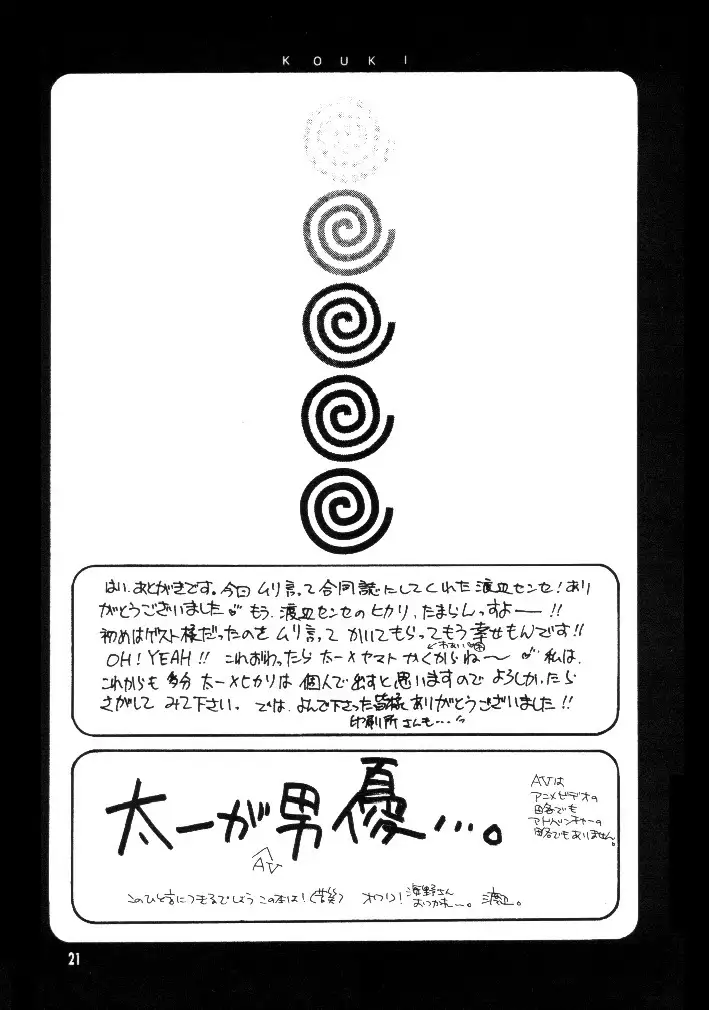 KOUKI
はい、あとがきです。今回ムリ言って合同誌にしてくれた渡辺センセ!あり
がとうございました もう、渡辺センセのヒカリ、たまらんっすよー!!
初めはゲスト様だったのをムリ言ってかいてもらってもう幸せもんです!!
OH!YEAH!! これおわったら太一×ヤマトかくからね〜 私は、
これからも多分太一×ヒカリは個人で出すと思いますのでよろしかったら
さがしてみて下さい。では、よんで下さった皆様ありがとうございました!!
印刷所さんも…
太一が男優…。
AV
AVは
アニメビデオの
略でも
アドベンチャーの
略でもありません。
このひと言につきるでしょうこの本は!(苦笑) オワリ!
海野さん
おつかれー。
渡辺。
21